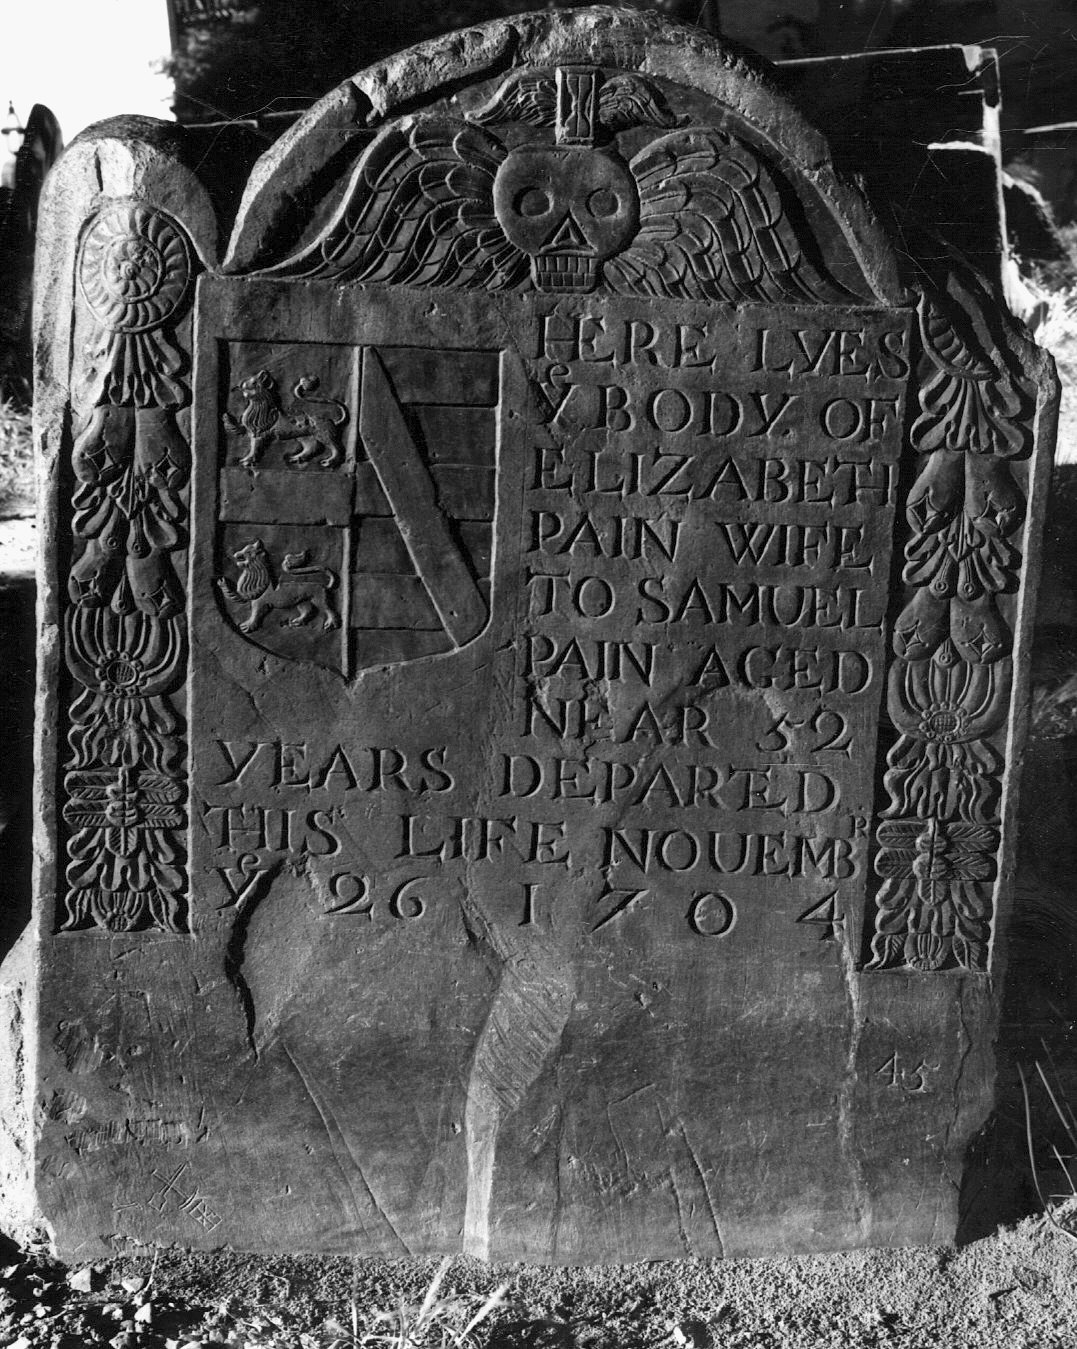 HERE LYES
Yᵉ BODY OF
ELIZABETH
PAIN WIFE
TO SAMUEL
PAIN AGED
NEAR 52
YEARS DEPARTED
THIS LIFE NOUEMBᴿ
Yᵉ 26 1704
45